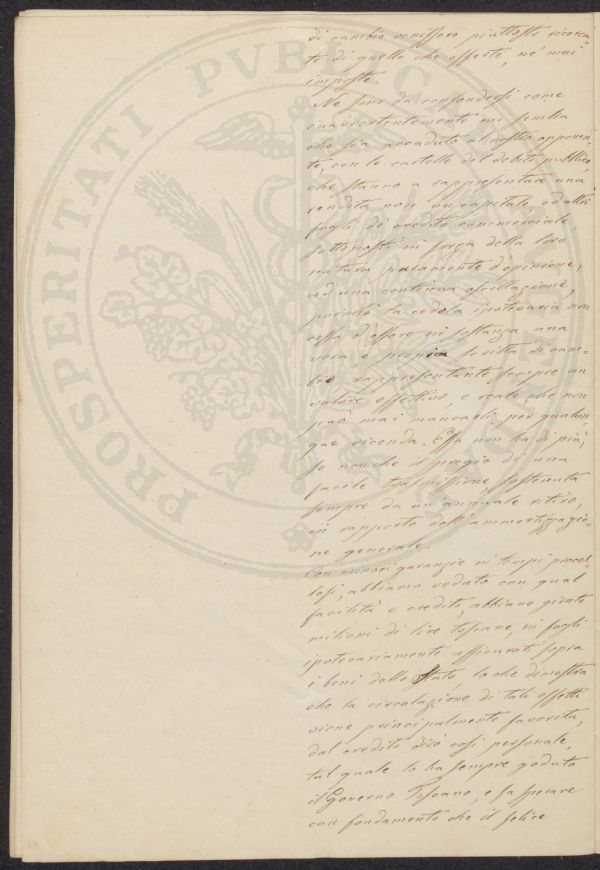 di cambio venissero piuttosto ricerca-
te di quello che offerte, nè mai
imposte.
Nè sono da confondersi come
inavvertentemente mi sembra
che sia accaduto al nostro opponen-
te, con le cartelle del debito pubblico,
che stanno a rappresentare una
rendita non un capitale od altri
fogli di credito commerciale
sottoposti in forza della loro
natura puramente d'opinione,
ad una continua oscillazione,
poichè la cedola ipotecaria non
cessa d'essere in sostanza una
vera e propria scritta di cam-
bio rappresentante sempre un
valore effettivo, e reale che non
può mai mancarli, per qualun-
que vicenda. Essa non ha di più,
se non che il pregio di una
facile trasmissione, sostenuta
sempre da un'annuale ritiro,
in rapporto dell'ammortizzazio-
ne generale.
Con minori garanzie in tempi procel-
losi, abbiamo veduto con qual
facilità e credito, abbiano girato
milioni di lire toscane, in fogli
ipotecariamente assicurati sopra
i beni dello Stato, lo che dimostra
che la circolazione di tali effetti
viene principalmente favorita,
dal credito dirò così personale,
tal quale lo ha sempre goduto
il Governo Toscano, e fa sperare
con fondamento che il felice
PROSPERITATI PVBLIC